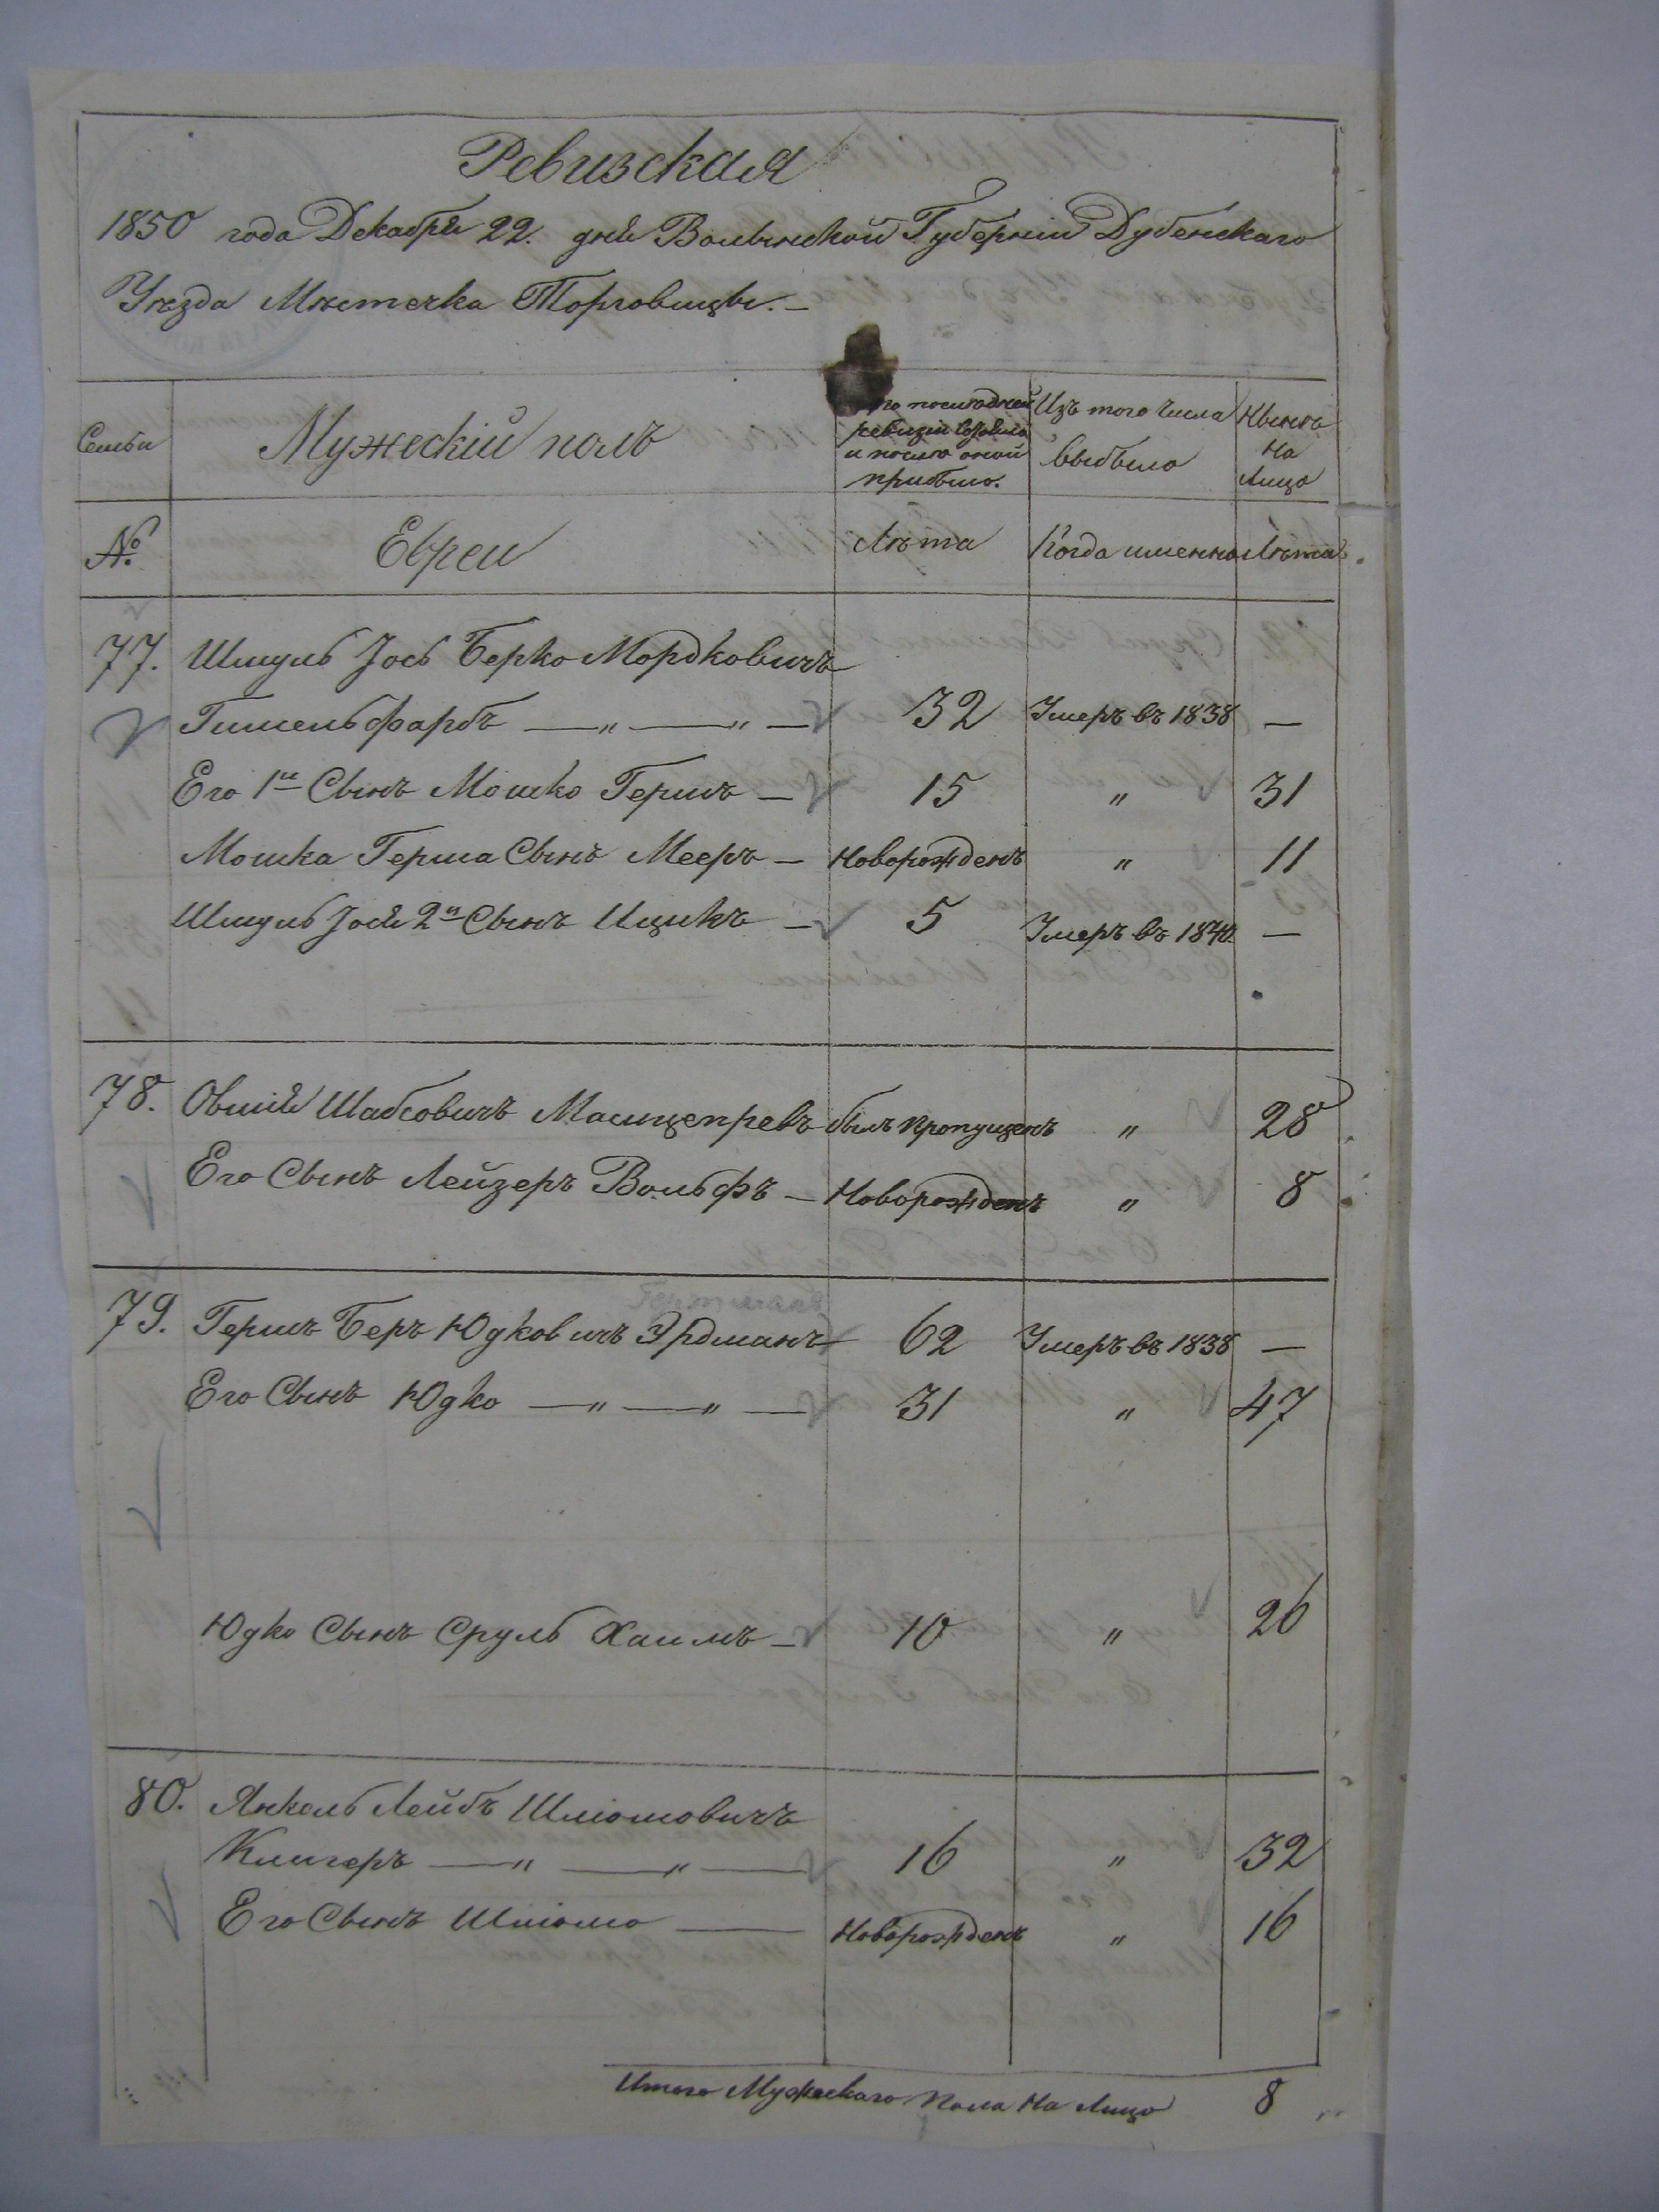 Ревизская
1850 года Декабря 22. дня Волынской Губерніи Дубенскаго
Уѣзда Мѣстечка Торговицы.—
Семьи
Мужескій полъ
по послѣдней
ревизіи состояло
и послѣ оной
прибыло.
Изъ того числа
выбыло
Нынѣ
на
лицо
№
Евреи
Лѣта
Когда именно
Лѣта
77. Шмуль Іось Берко Мордковичъ
Гимельфарбъ —„—„— 32 Умеръ въ 1838 —
Его 1й Сынъ Мошко Гершъ — 15 „ 31
Мошка Герша Сынъ Мееръ — Новорожденъ „ 11
Шмуль Іося 2й Сынъ Ицикъ — 5 Умеръ въ 1840 —
78. Овшія Шабсовичъ былъ пропущенъ „ 28
Его Сынъ Лейзеръ Вольфъ — Новорожденъ „ 8
79. Гершъ Беръ Юдковичъ Эрдманъ 62 Умеръ въ 1838 —
Его Сынъ Юдко —„—„— 31 „ 47
Юдко Сынъ Сруль Хаимъ — 10 „ 26
80. Янкель Лейбъ Шліомовичъ
Клигеръ —„—„— 16 „ 32
Его Сынъ Шліомо — Новорожденъ „ 16
Итого Мужескаго пола на лицо 8